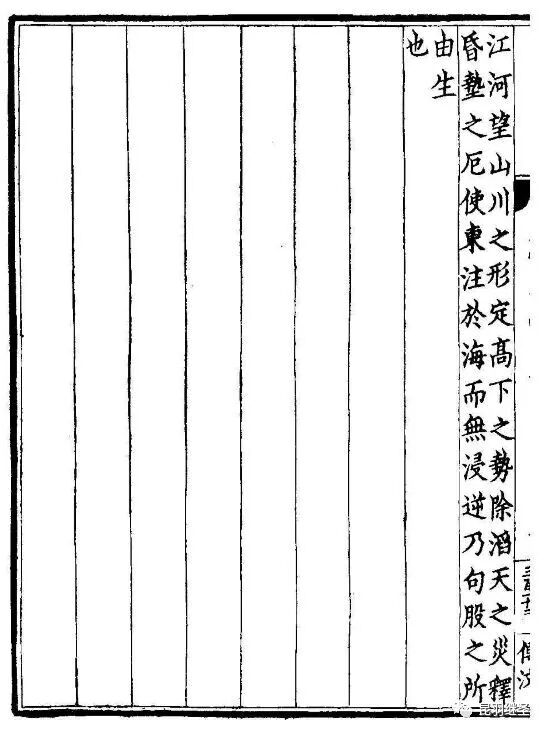 江河望山川之形定高下之勢除滔天之災釋
昏墊之厄使東注於海而無浸逆乃句股之所
由生
也
昆羽继圣